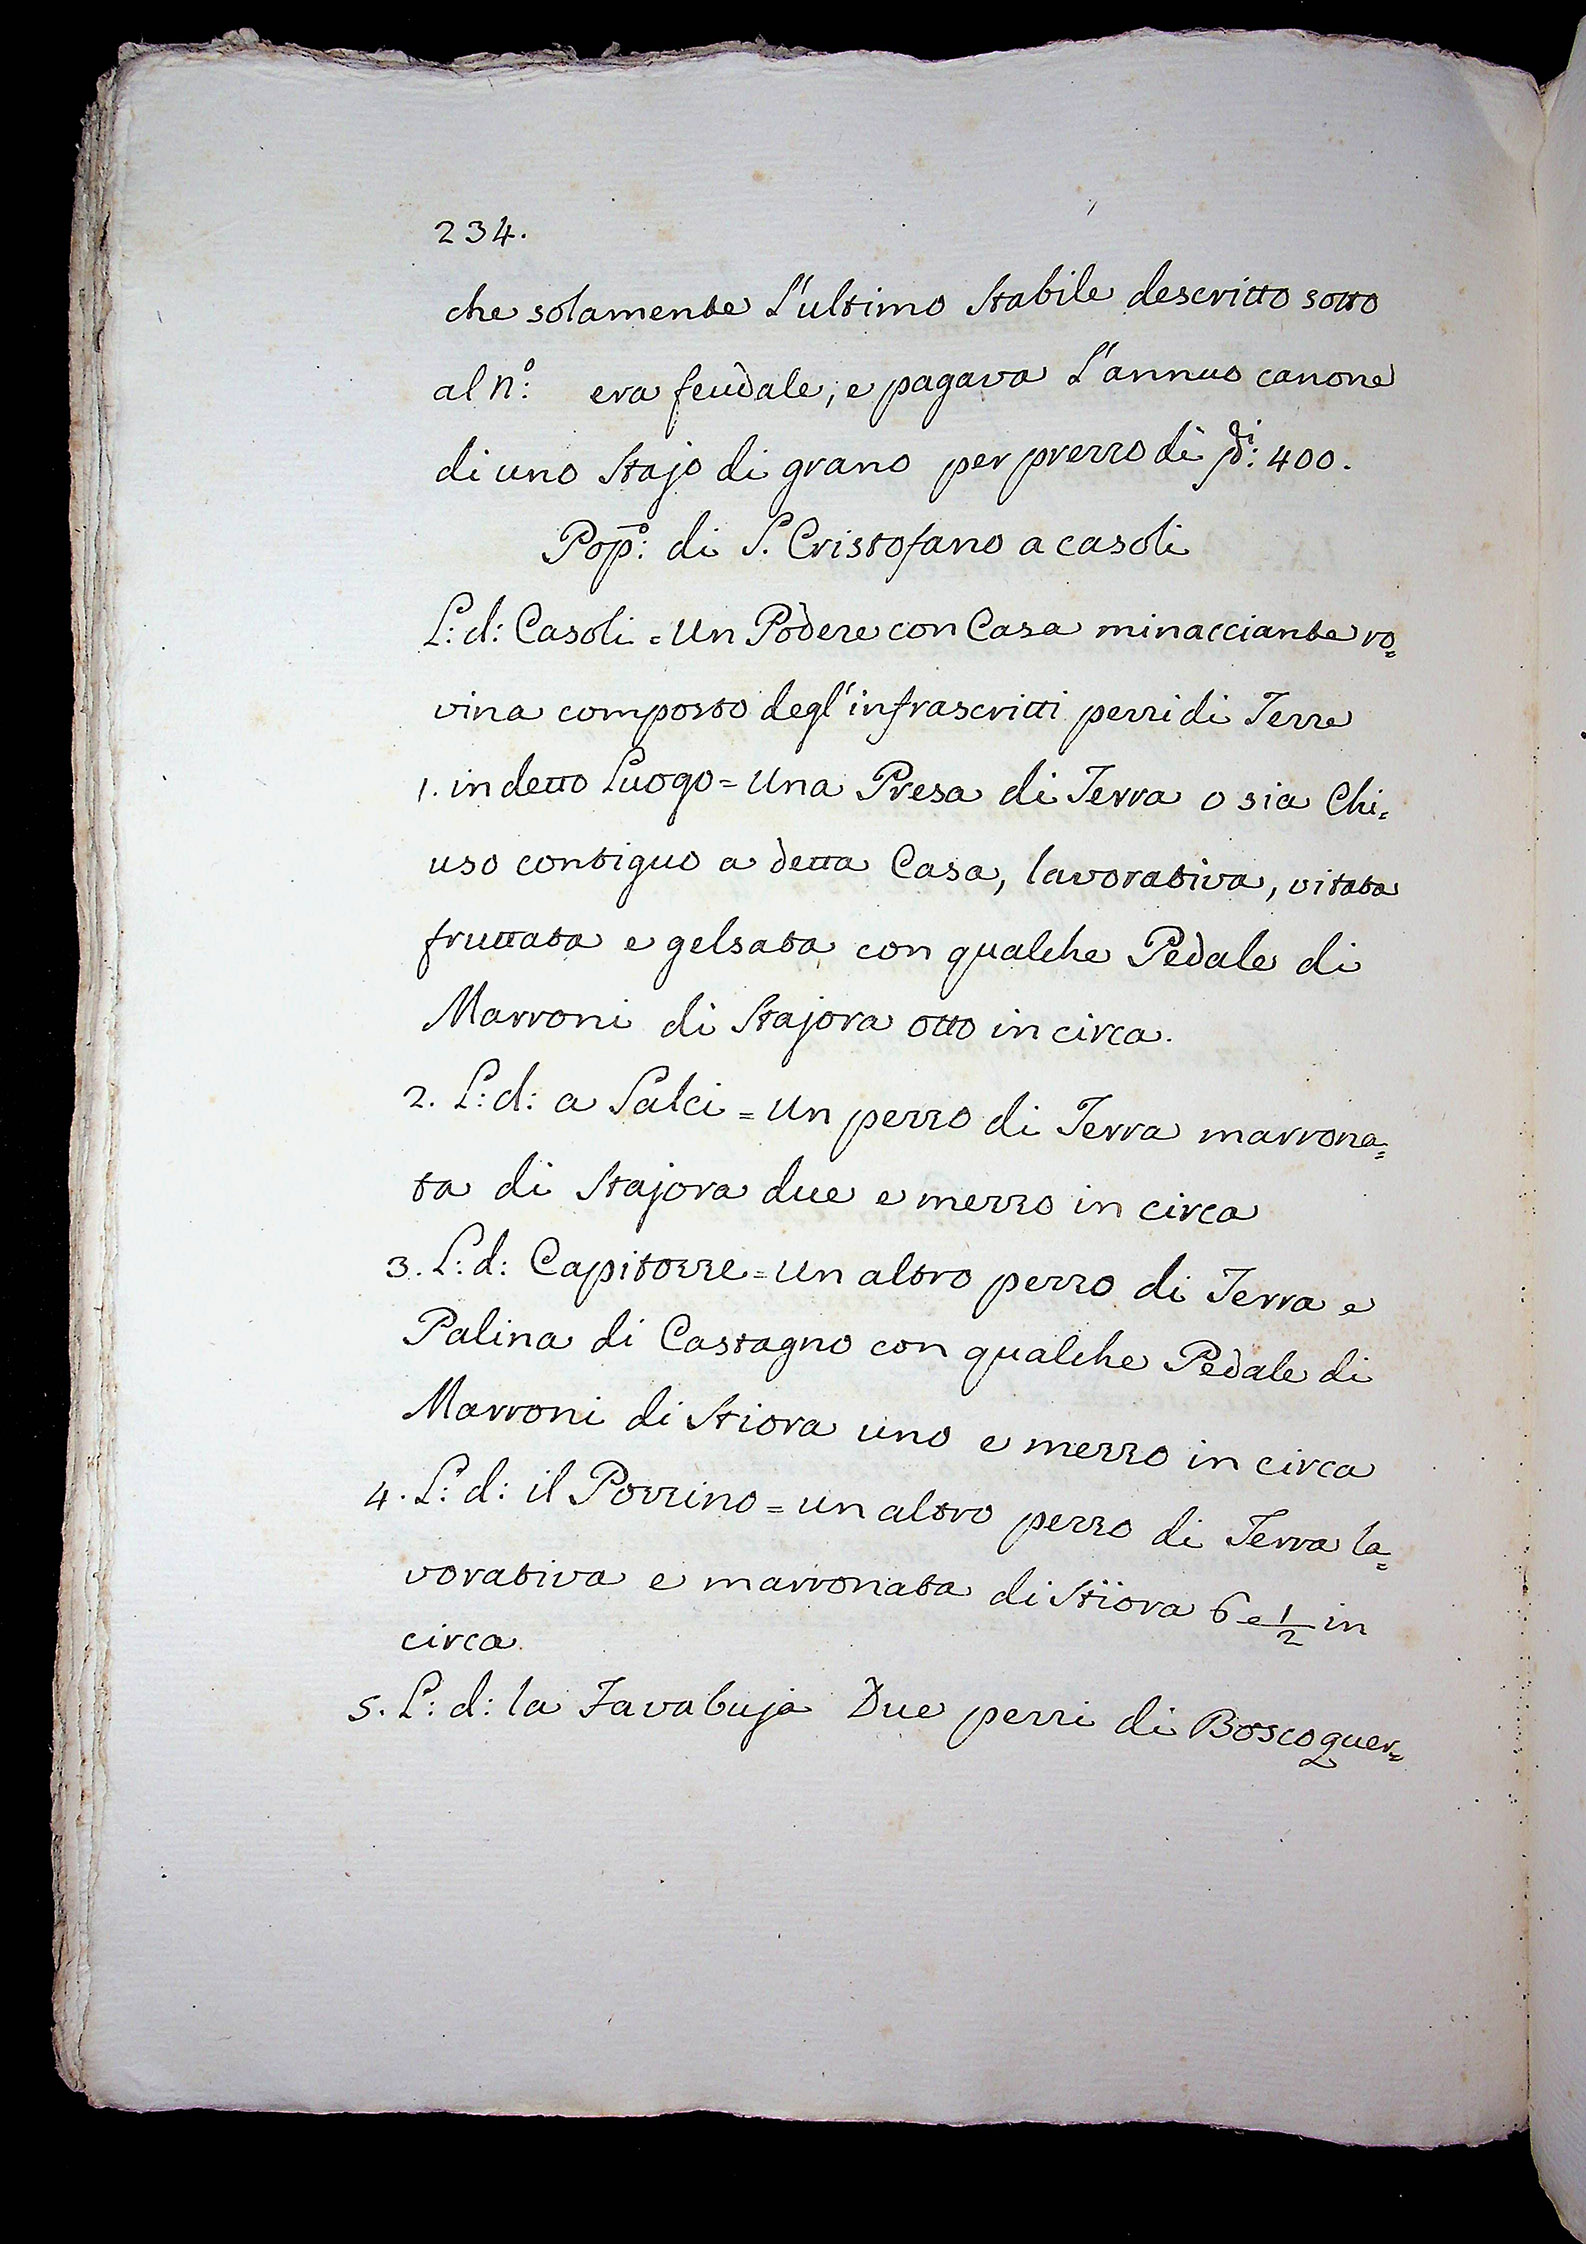 234.
che solamente L'ultimo Stabile descritto sotto
al n.º era feudale, e pagava L'annuo canone
di uno Stajo di grano per prezzo di 400.
Pop.º: di S. Cristofano a casoli
L: d: Casoli = Un Podere con Casa minacciante ro=
vina composto degl'infrascritti pezzi di Terre
1. in detto Luogo = Una Presa di Terra o sia Chi=
uso contiguo a detta Casa, lavorativa, vitata
fruttata e gelsata con qualche Pedale di
Marroni di Stajora otto in circa.
2. L: d: a Salci = Un pezzo di Terra marrona=
ta di Stajora due e mezzo in circa
3. L: d: Capitozze = Un altro pezzo di Terra e
Palina di Castagno con qualche Pedale di
Marroni di Stiora uno e mezzo in circa
4. L: d: il Pozzino = un altro pezzo di Terra la=
vorativa e marronata di Stiora 6 e 1/2 in
circa
5. L: d: la Favabuja Due pezzi di Bosco quer=